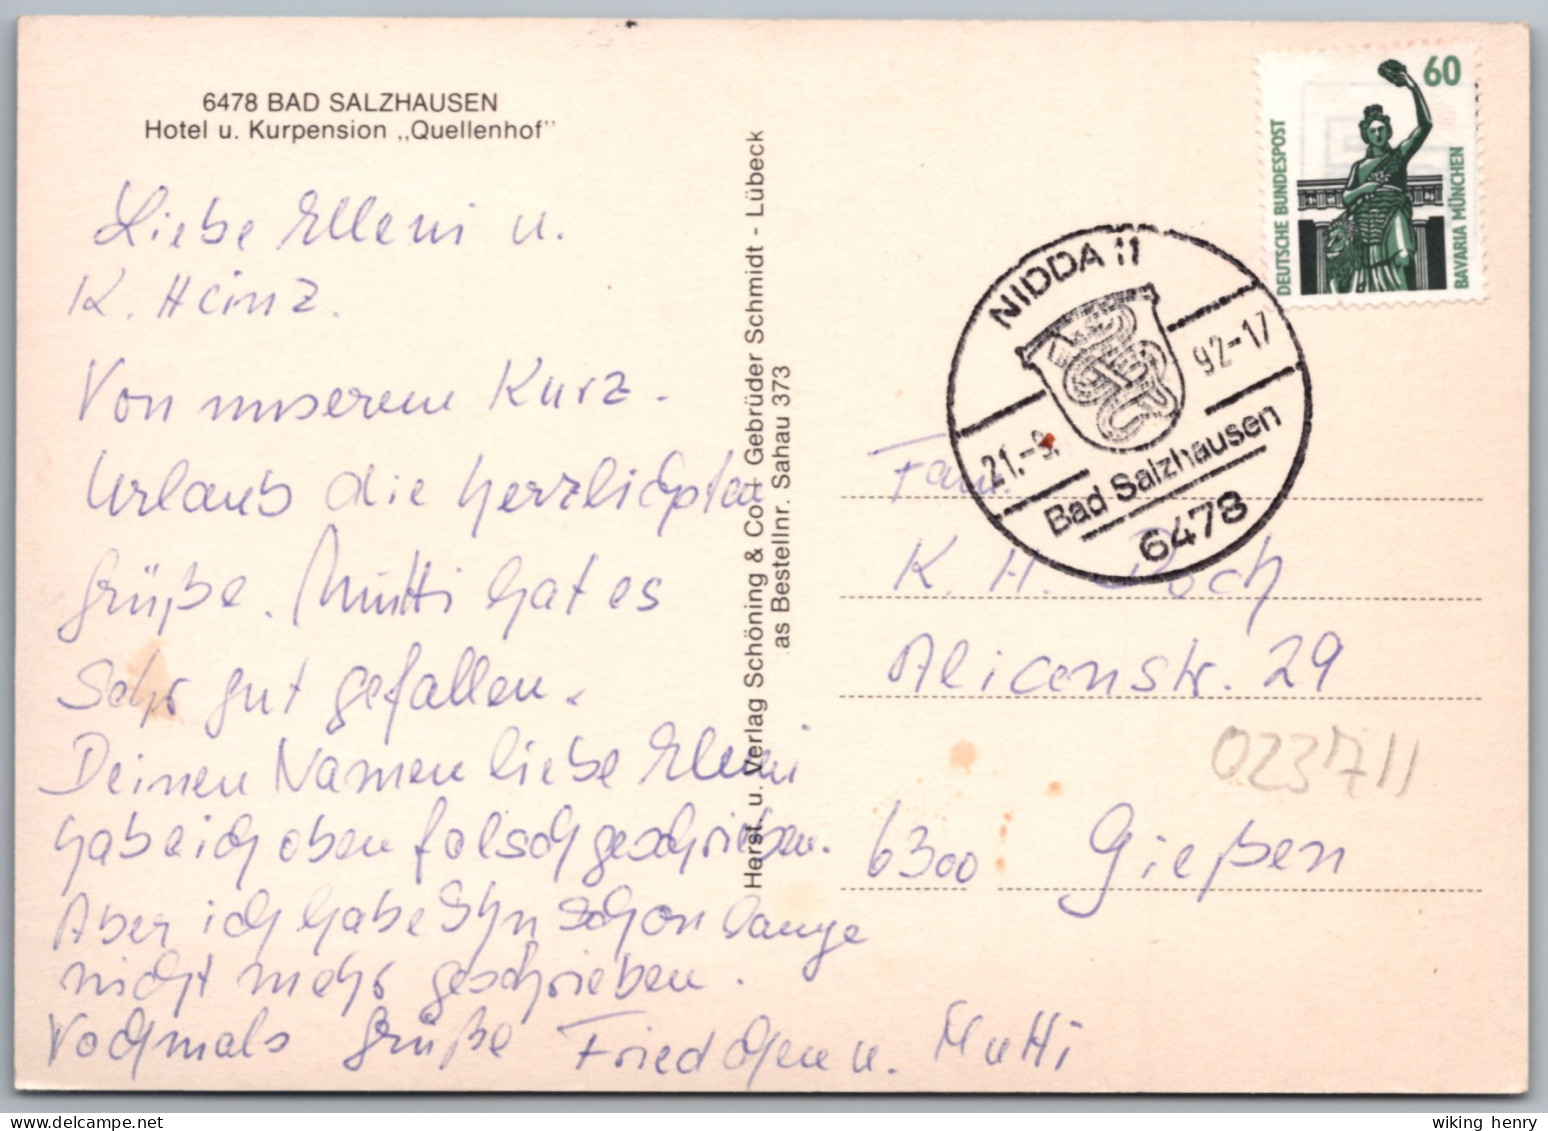 6478 BAD SALZHAUSEN
Hotel u. Kurpension „Quellenhof"
Liebe Elleni u.
K. Heinz.
Von unserem Kurz-
Urlaub die herzlichsten
Grüße. Mutti hat es
Sehr gut gefallen.
Deinen Namen liebe Elleni
habe ich oben falsch geschrieben.
Aber ich habe Ihn schon lange
nicht mehr geschrieben.
Nochmals Grüße Friedchen u. Mutti
Herst. u. Verlag Schöning & Co + Gebrüder Schmidt - Lübeck
as Bestellnr. Sahau 373
60
DEUTSCHE BUNDESPOST
BAVARIA MÜNCHEN
NIDDA 11
21.-9. 92-17
Bad Salzhausen
6478
Fam.
K. H. Koch
Alicenstr. 29
023711
6300 Gießen
wiking henry